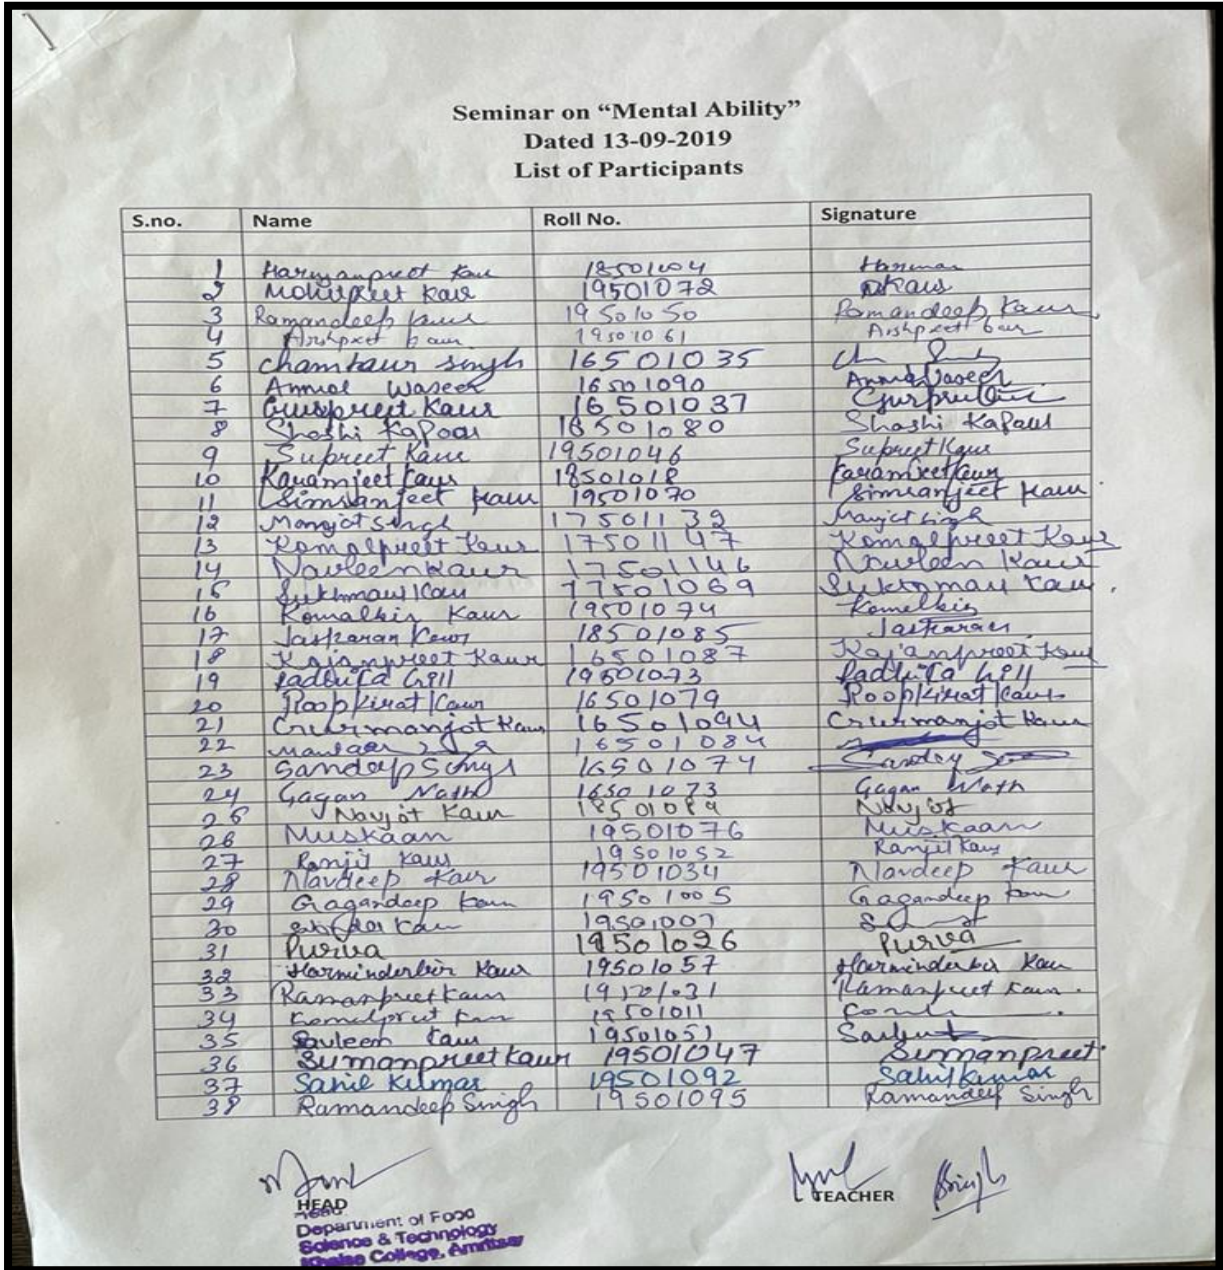 Seminar on “Mental Ability”
Dated 13-09-2019
List of Participants
S.no. Name Roll No. Signature
1 Harmanpreet Kaur 18501004 Harman
2 Mohitpreet Kaur 19501072 Kaur
3 Ramandeep Kaur 19501050 Ramandeep Kaur
4 Arshpreet Kaur 19501061 Arshpreet Kaur
5 Chamkaur Singh 16501035
6 Anmol Waseer 16501090 Anmol Waseer
7 Gurpreet Kaur 16501037
8 Shashi Kapoor 16501080 Shashi Kapoor
9 Supreet Kaur 19501046 Supreet Kaur
10 Karamjeet Kaur 18501018 Karamjeet Kaur
11 Simranjeet Kaur 19501070 Simranjeet Kaur
12 Manjot Singh 17501132 Manjot Singh
13 Komalpreet Kaur 17501147 Komalpreet Kaur
14 Navleen Kaur 17501146 Navleen Kaur
15 Sukhmani Kaur 17501069 Sukhmani Kaur
16 Komalbir Kaur 19501074 Komalbir
17 Jaskaran Kaur 18501085 Jaskaran
18 Rajanpreet Kaur 16501087 Rajanpreet Kaur
19 Gill 19501093 Gill
20 Roopkirat Kaur 16501079 Roopkirat Kaur
21 Gurmanjot Kaur 16501094 Gurmanjot Kaur
22 16501084
23 Sandeep Singh 16501074
24 Gagan Nath 16501073 Gagan Nath
25 Navjot Kaur 18501089 Navjot
26 Muskaan 19501076 Muskaan
27 Ranjit Kaur 19501052 Ranjit Kaur
28 Navdeep Kaur 19501034 Navdeep Kaur
29 Gagandeep Kaur 19501005 Gagandeep Kaur
30 Kaur 19501007
31 Purva 19501026 Purva
32 Harminderbir Kaur 19501057 Harminderbir Kaur
33 Ramanpreet Kaur 19501031 Ramanpreet Kaur
34 Komalpreet Kaur 19501011
35 Kaur 19501051
36 Sumanpreet Kaur 19501047 Sumanpreet
37 Sahil Kumar 19501092 Sahil Kumar
38 Ramandeep Singh 19501095 Ramandeep Singh
HEAD TEACHER
Head
Department of Food
Science & Technology
Khalsa College, Amritsar